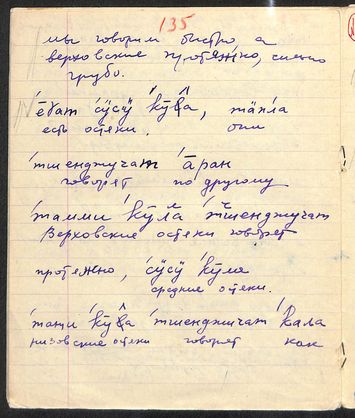 135
мы говорим быстро а
верховские протяжно, сильно
грубо.
'ēӷат 'сӱсӱ 'кӯла, тäпла
есть остяки. они
'тшенджучат 'āран
говорят по другому
'тамми 'кӯла 'тшенджучат
Верховские остяки говорят
протяжно, 'сӱсӱ 'кӯла
средние остяки.
'таңи 'кӯла 'тшенджичат 'кала
низовские остяки говорят как